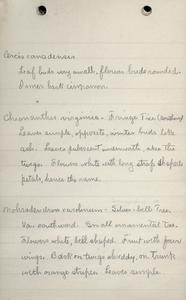 Cercis canadensis
Leaf buds very small, flower buds rounded.
Inner bark cinnamon.
Chionanthus virginica - Fringe Tree
Leaves simple, opposite, winter buds like
ash. Leaves pubescent underneath, also the
twigs. Flowers white with long strap shaped
petals, hence the name.
Mohrodendron carolinum - Silver-bell Tree.
Va. southward. Small ornamental tree.
Flowers white, bell shaped. Fruit with four
wings. Bark on twigs shreddy, on trunk
with orange stripes. Leaves simple.